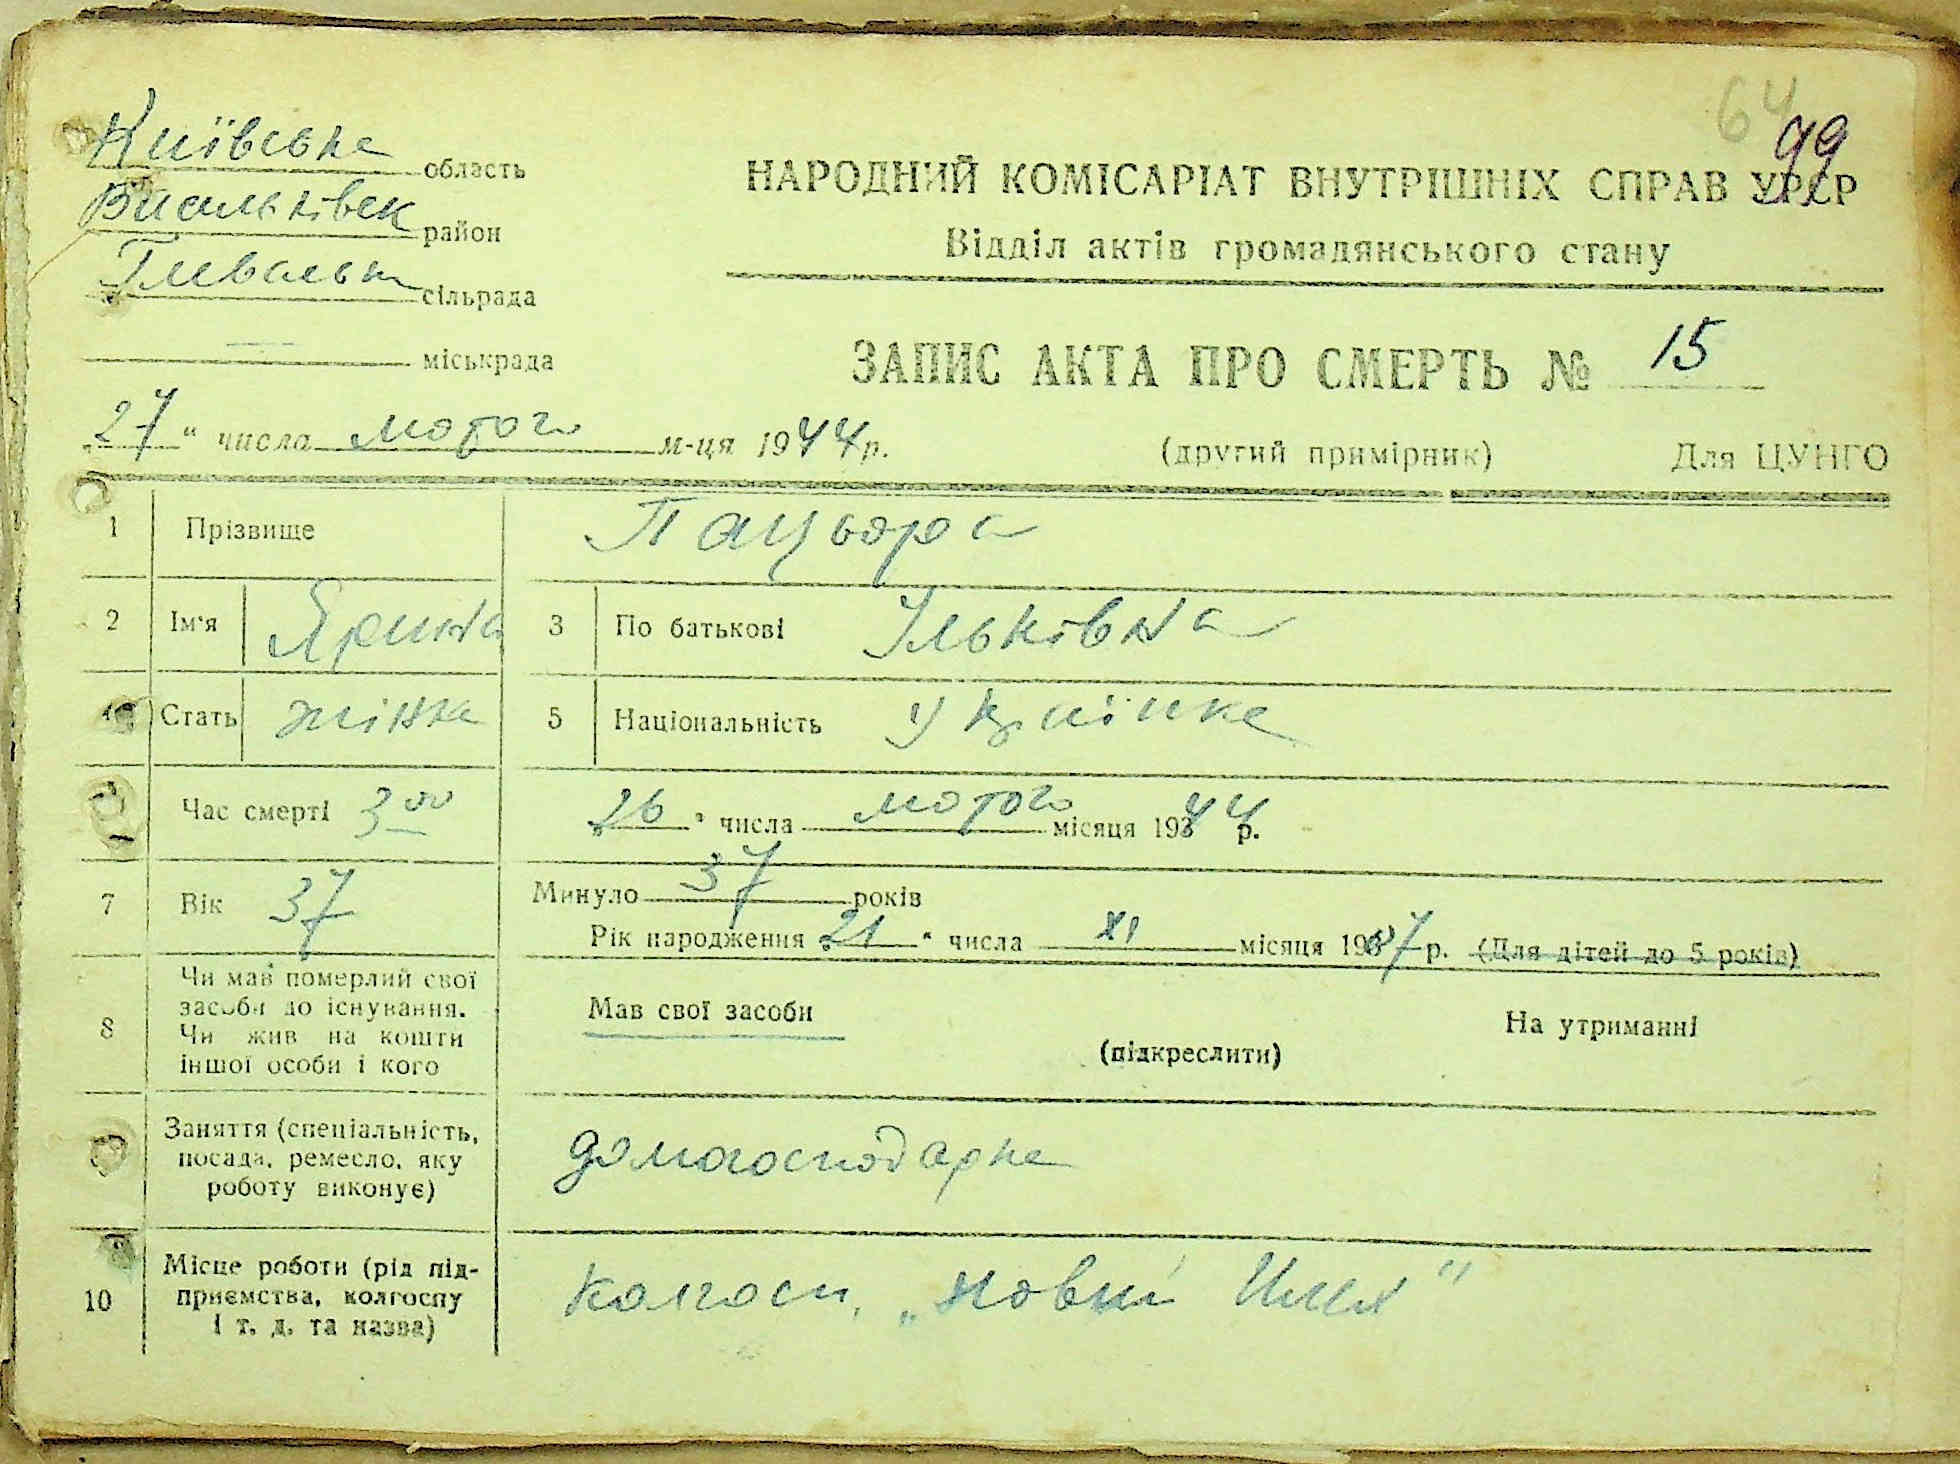 64
99
Київська область
Васильківськ район
Гвальн сільрада
міськрада
НАРОДНИЙ КОМІСАРІАТ ВНУТРІШНІХ СПРАВ УРСР
Відділ актів громадянського стану
ЗАПИС АКТА ПРО СМЕРТЬ № 15
„27“ числа лютого м-ця 1944р.
(другий примірник) Для ЦУНГО
1 Прізвище Пацьора
2 Ім'я Ярина 3 По батькові Ільківна
Стать жінка 5 Національність Українка
Час смерті 3 00 „26“ числа лютого місяця 1944 р.
7 Вік 37 Минуло 37 років
Рік народження „21“ числа XI місяця 1907 р. (Для дітей до 5 років)
8 Чи мав померлий свої засоби до існування. Чи жив на кошти іншої особи і кого
Мав свої засоби (підкреслити) На утриманні
Заняття (спеціальність, посада, ремесло, яку роботу виконує) домогосподарка
10 Місце роботи (рід підприємства, колгоспу і т. д. та назва) Колгосп, „Новий Шлях"